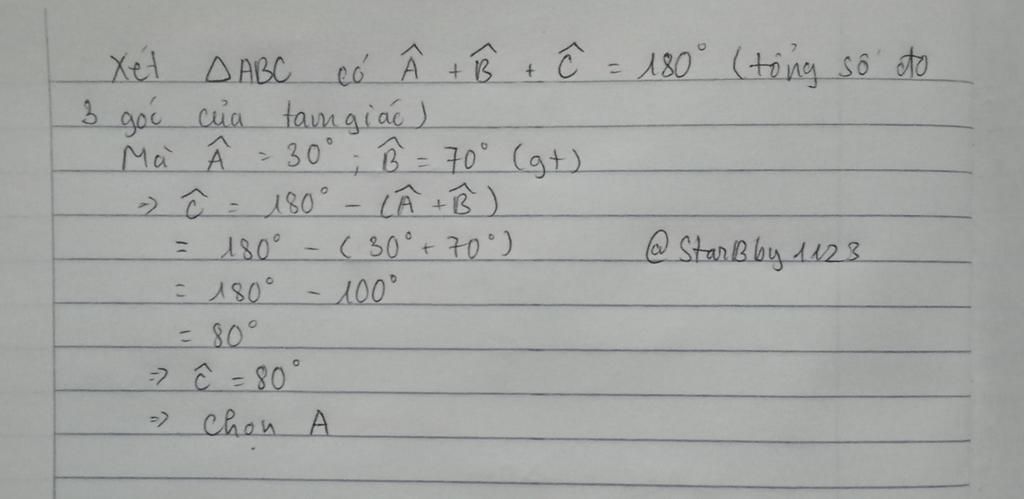 Xét ΔABC có Â + B̂ + Ĉ = 180° (tổng số đo
3 góc của tam giác)
Mà Â = 30° ; B̂ = 70° (gt)
=> Ĉ = 180° - (Â + B̂)
= 180° - (30° + 70°)
@StarBby1123
= 180° - 100°
= 80°
=> Ĉ = 80°
=> Chọn A